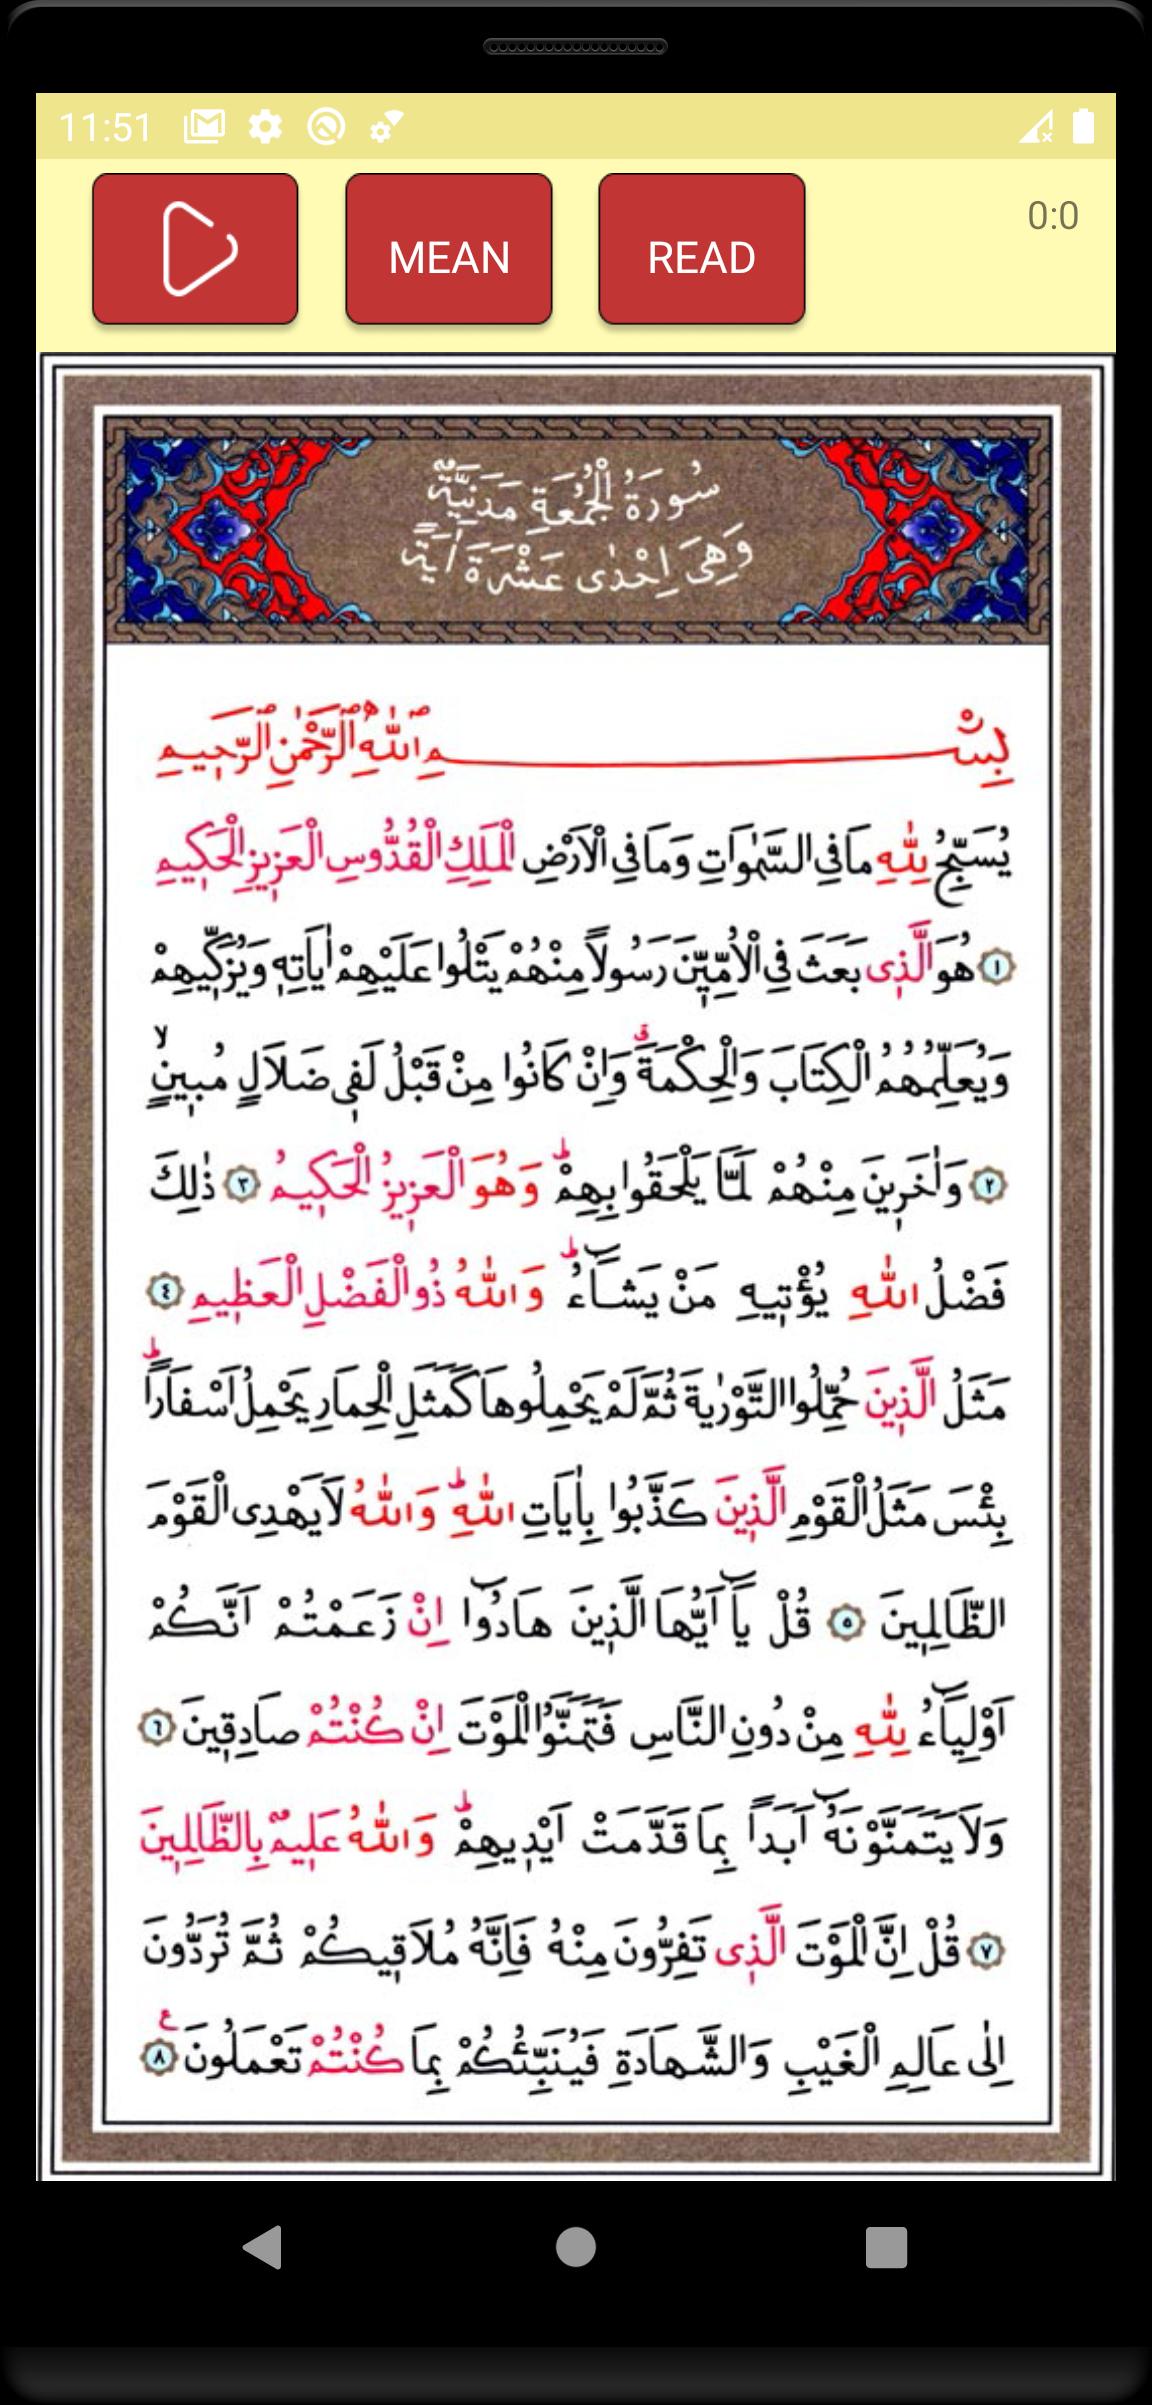 11:51
MEAN
READ
0:0
سُورَةُ الْجُمُعَةِ مَدَنِيَّةٌ
وَهِىَ اِحْدٰى عَشْرَةَ اٰيَةً
بِسْمِ اللّٰهِ الرَّحْمٰنِ الرَّحِيمِ
يُسَبِّحُ لِلّٰهِ مَا فِي السَّمٰوَاتِ وَمَا فِي الْاَرْضِ الْمَلِكِ الْقُدُّوسِ الْعَزِيزِ الْحَكِيمِ
١ هُوَ الَّذِى بَعَثَ فِي الْاُمِّيِّنَ رَسُولاً مِنْهُمْ يَتْلُوا عَلَيْهِمْ اٰيَاتِهِ وَيُزَكِّيهِمْ
وَيُعَلِّمُهُمُ الْكِتَابَ وَالْحِكْمَةَ ۗ وَاِنْ كَانُوا مِنْ قَبْلُ لَفِى ضَلَالٍ مُبِينٍ ۙ
٢ وَاٰخَرِينَ مِنْهُمْ لَمَّا يَلْحَقُوا بِهِمْ ؕ وَهُوَ الْعَزِيزُ الْحَكِيمُ ٣ ذٰلِكَ
فَضْلُ اللّٰهِ يُؤْتِيهِ مَنْ يَشَاۤءُ ؕ وَاللّٰهُ ذُو الْفَضْلِ الْعَظِيمِ ٤
مَثَلُ الَّذِينَ حُمِّلُوا التَّوْرٰيةَ ثُمَّ لَمْ يَحْمِلُوهَا كَمَثَلِ الْحِمَارِ يَحْمِلُ اَسْفَاراً ؕ
بِئْسَ مَثَلُ الْقَوْمِ الَّذِينَ كَذَّبُوا بِاٰيَاتِ اللّٰهِ ؕ وَاللّٰهُ لَا يَهْدِى الْقَوْمَ
الظَّالِمِينَ ٥ قُلْ يَاۤ اَيُّهَا الَّذِينَ هَادُۤوا اِنْ زَعَمْتُمْ اَنَّكُمْ
اَوْلِيَاۤءُ لِلّٰهِ مِنْ دُونِ النَّاسِ فَتَمَنَّوُا الْمَوْتَ اِنْ كُنْتُمْ صَادِقِينَ ٦
وَلَا يَتَمَنَّوْنَهُۤ اَبَداً بِمَا قَدَّمَتْ اَيْدِيهِمْ ؕ وَاللّٰهُ عَلِيمٌ بِالظَّالِمِينَ
٧ قُلْ اِنَّ الْمَوْتَ الَّذِى تَفِرُّونَ مِنْهُ فَاِنَّهُ مُلَاقِيكُمْ ثُمَّ تُرَدُّونَ
اِلٰى عَالِمِ الْغَيْبِ وَالشَّهَادَةِ فَيُنَبِّئُكُمْ بِمَا كُنْتُمْ تَعْمَلُونَ ع ٨